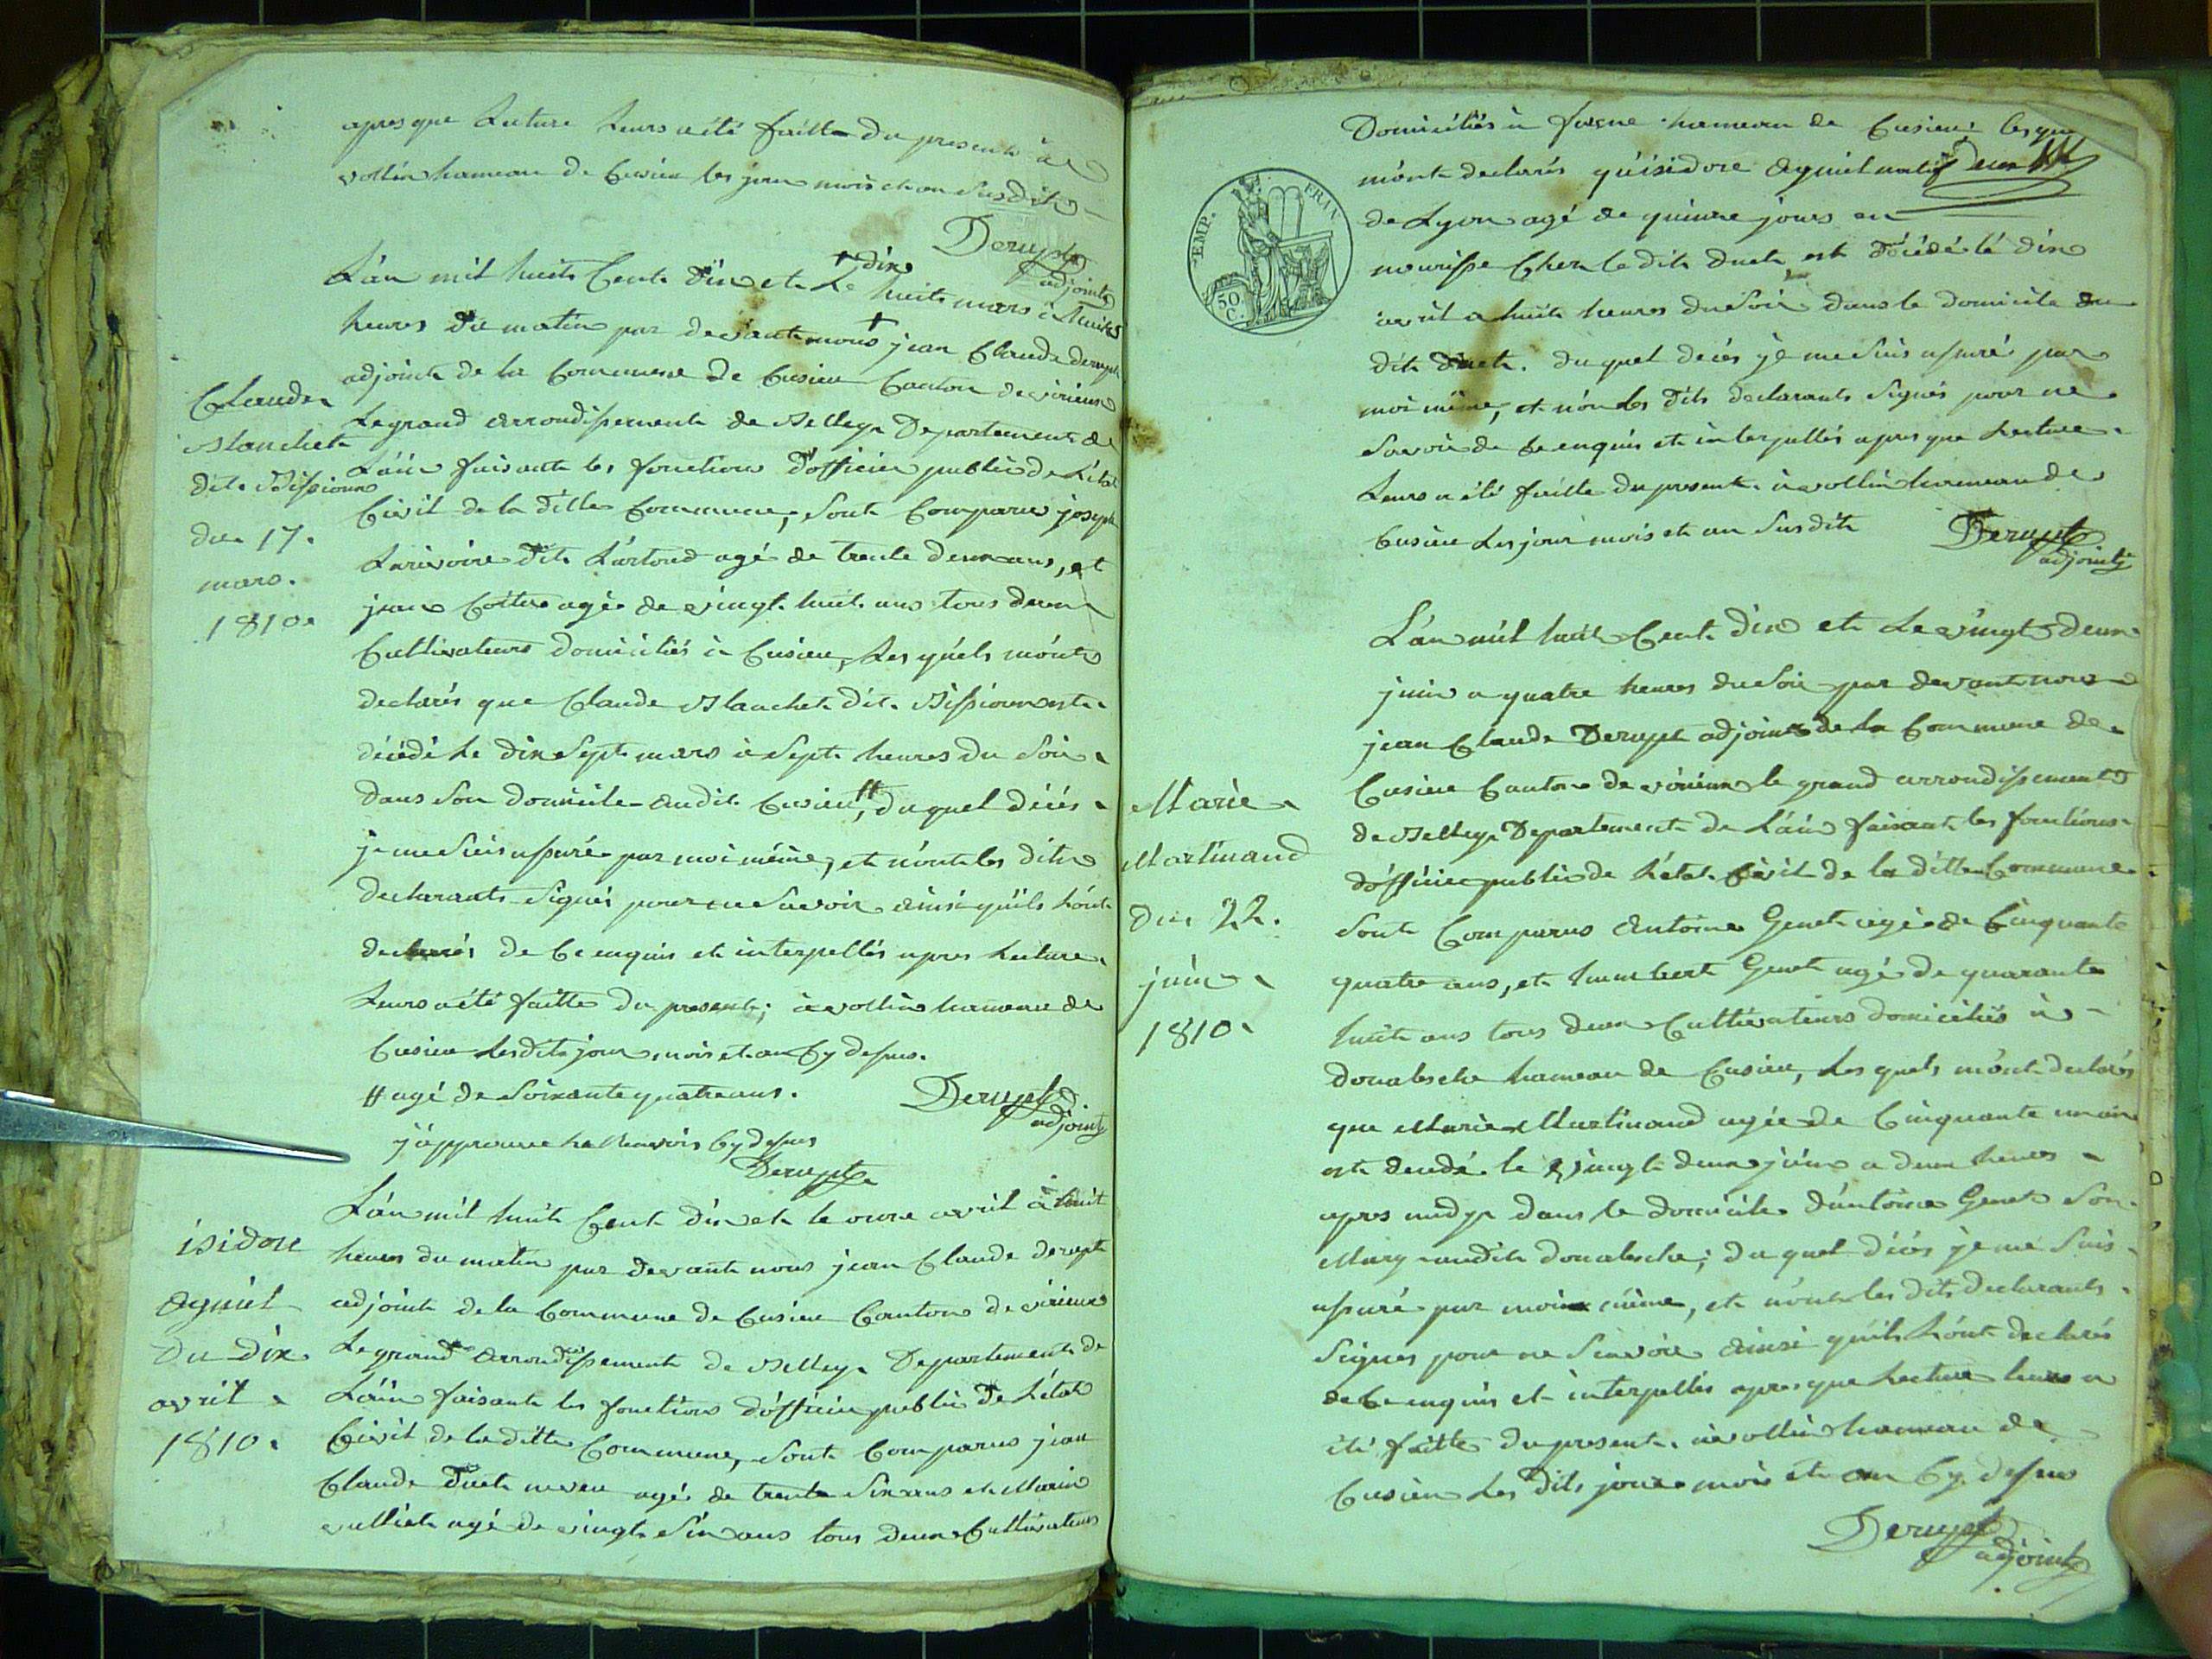 apres que Lecture Leurs a été faitte du present à
vollin hameau de Cusieu les jour mois et an susdits
Derupt
adjoint
L'an mil huit Cent dix et Le † dix huit mars à huit
heures du matin par devant nous † jean Claude derupt
adjoint de la Commune de Cusieu Canton de virieux
Le grand arrondissement de Belley Departement de
L'ain faisant les fonctions d'officier public de L'état
Civil de la ditte Commune, sont Comparus joseph
Larivoire dit Lartaud agé de trente deux ans, et
jean agé de vingt huit ans tous deux
Cultivateurs domiciliés à Cusieu, Les quels m'ont
declarés que Claude Blanchet dit Bissioux est
décédé le dix sept mars à sept heures du soir
dans son domicile audit Cusieu ⧺, du quel décés
je me suis assuré par moi même, et n'ont les dits
declarants signés pour ne savoir ainsi qu'ils L'ont
declarés de Ce enquis et interpellés apres Lecture
Leurs a été faitte du present; à vollin hameau de
Cusieu Lesdits jour, mois et an Cy dessus.
⧺ agé de soixante quatre ans.
Derupt
adjoint
j'approuve le Renvois Cy dessus
Derupt
Claude
Blanchet
dit Bissioux
du 17.
mars.
1810.
L'an mil huit Cent dix et le onze avril à huit
heures du matin par devant nous jean Claude derupt
adjoint de la Commune de Cusieu Canton de virieux
Le grand arrondissement de Belley Departement de
L'ain faisant les fonctions d'officier public de L'état
Civil de la ditte Commune, sont Comparus jean
Claude Duet neveu agé de trente six ans et Marin
vulliet agé de vingt six ans tous deux Cultivateurs
isidore
Agniel
Du dix
avril
1810.
Domiciliés à hameau de Cusieu lesquels
m'ont declarés qu'isidore Agniel natif
de Lyon agé de quinze jours en
nourisse Chez le dit Duet est décédé le dix
avril a huit heures du soir dans le domicile du
dit Duet. du quel décés je me suis assuré par
moi même, et n'ont les dits declarants signés pour ne
savoir de Ce enquis et interpellés apres que Lecture
Leurs a été faitte du present. à vollin hameau de
Cusieu Les jour mois et an susdits
Derupt
adjoint
EMP. FRAN
50
C.
L'an mil huit Cent dix et Le vingt deux
juin a quatre heures du soir par devant nous
jean Claude Derupt adjoint de la Commune de
Cusieu Canton de virieux le grand arrondissement
de Belley Departement de L'ain faisant les fonctions
d'officier public de L'état Civil de la ditte Commune
sont Comparus Antoine Genet agé de Cinquante
quatre ans, et humbert Genet agé de quarante
huit ans tous deux Cultivateurs domiciliés à
donalèche hameau de Cusieu, Les quels m'ont declarés
que Marie Martinand agée de Cinquante un an
est decedé le vingt deux juin a deux heures
apres midy dans le domicile d'antoine Genet son
Mary audit donalèche; du quel décés je me suis
assuré par moi même, et n'ont les dits declarants
signés pour ne savoir ainsi qu'ils L'ont declarés
de Ce enquis et interpellés apres que Lecture leurs a
été faitte du present. à vollin hameau de
Cusieu Les dits jour mois et an Cy dessus
Derupt
adjoint
Marie
Martinand
du 22.
juin
1810.